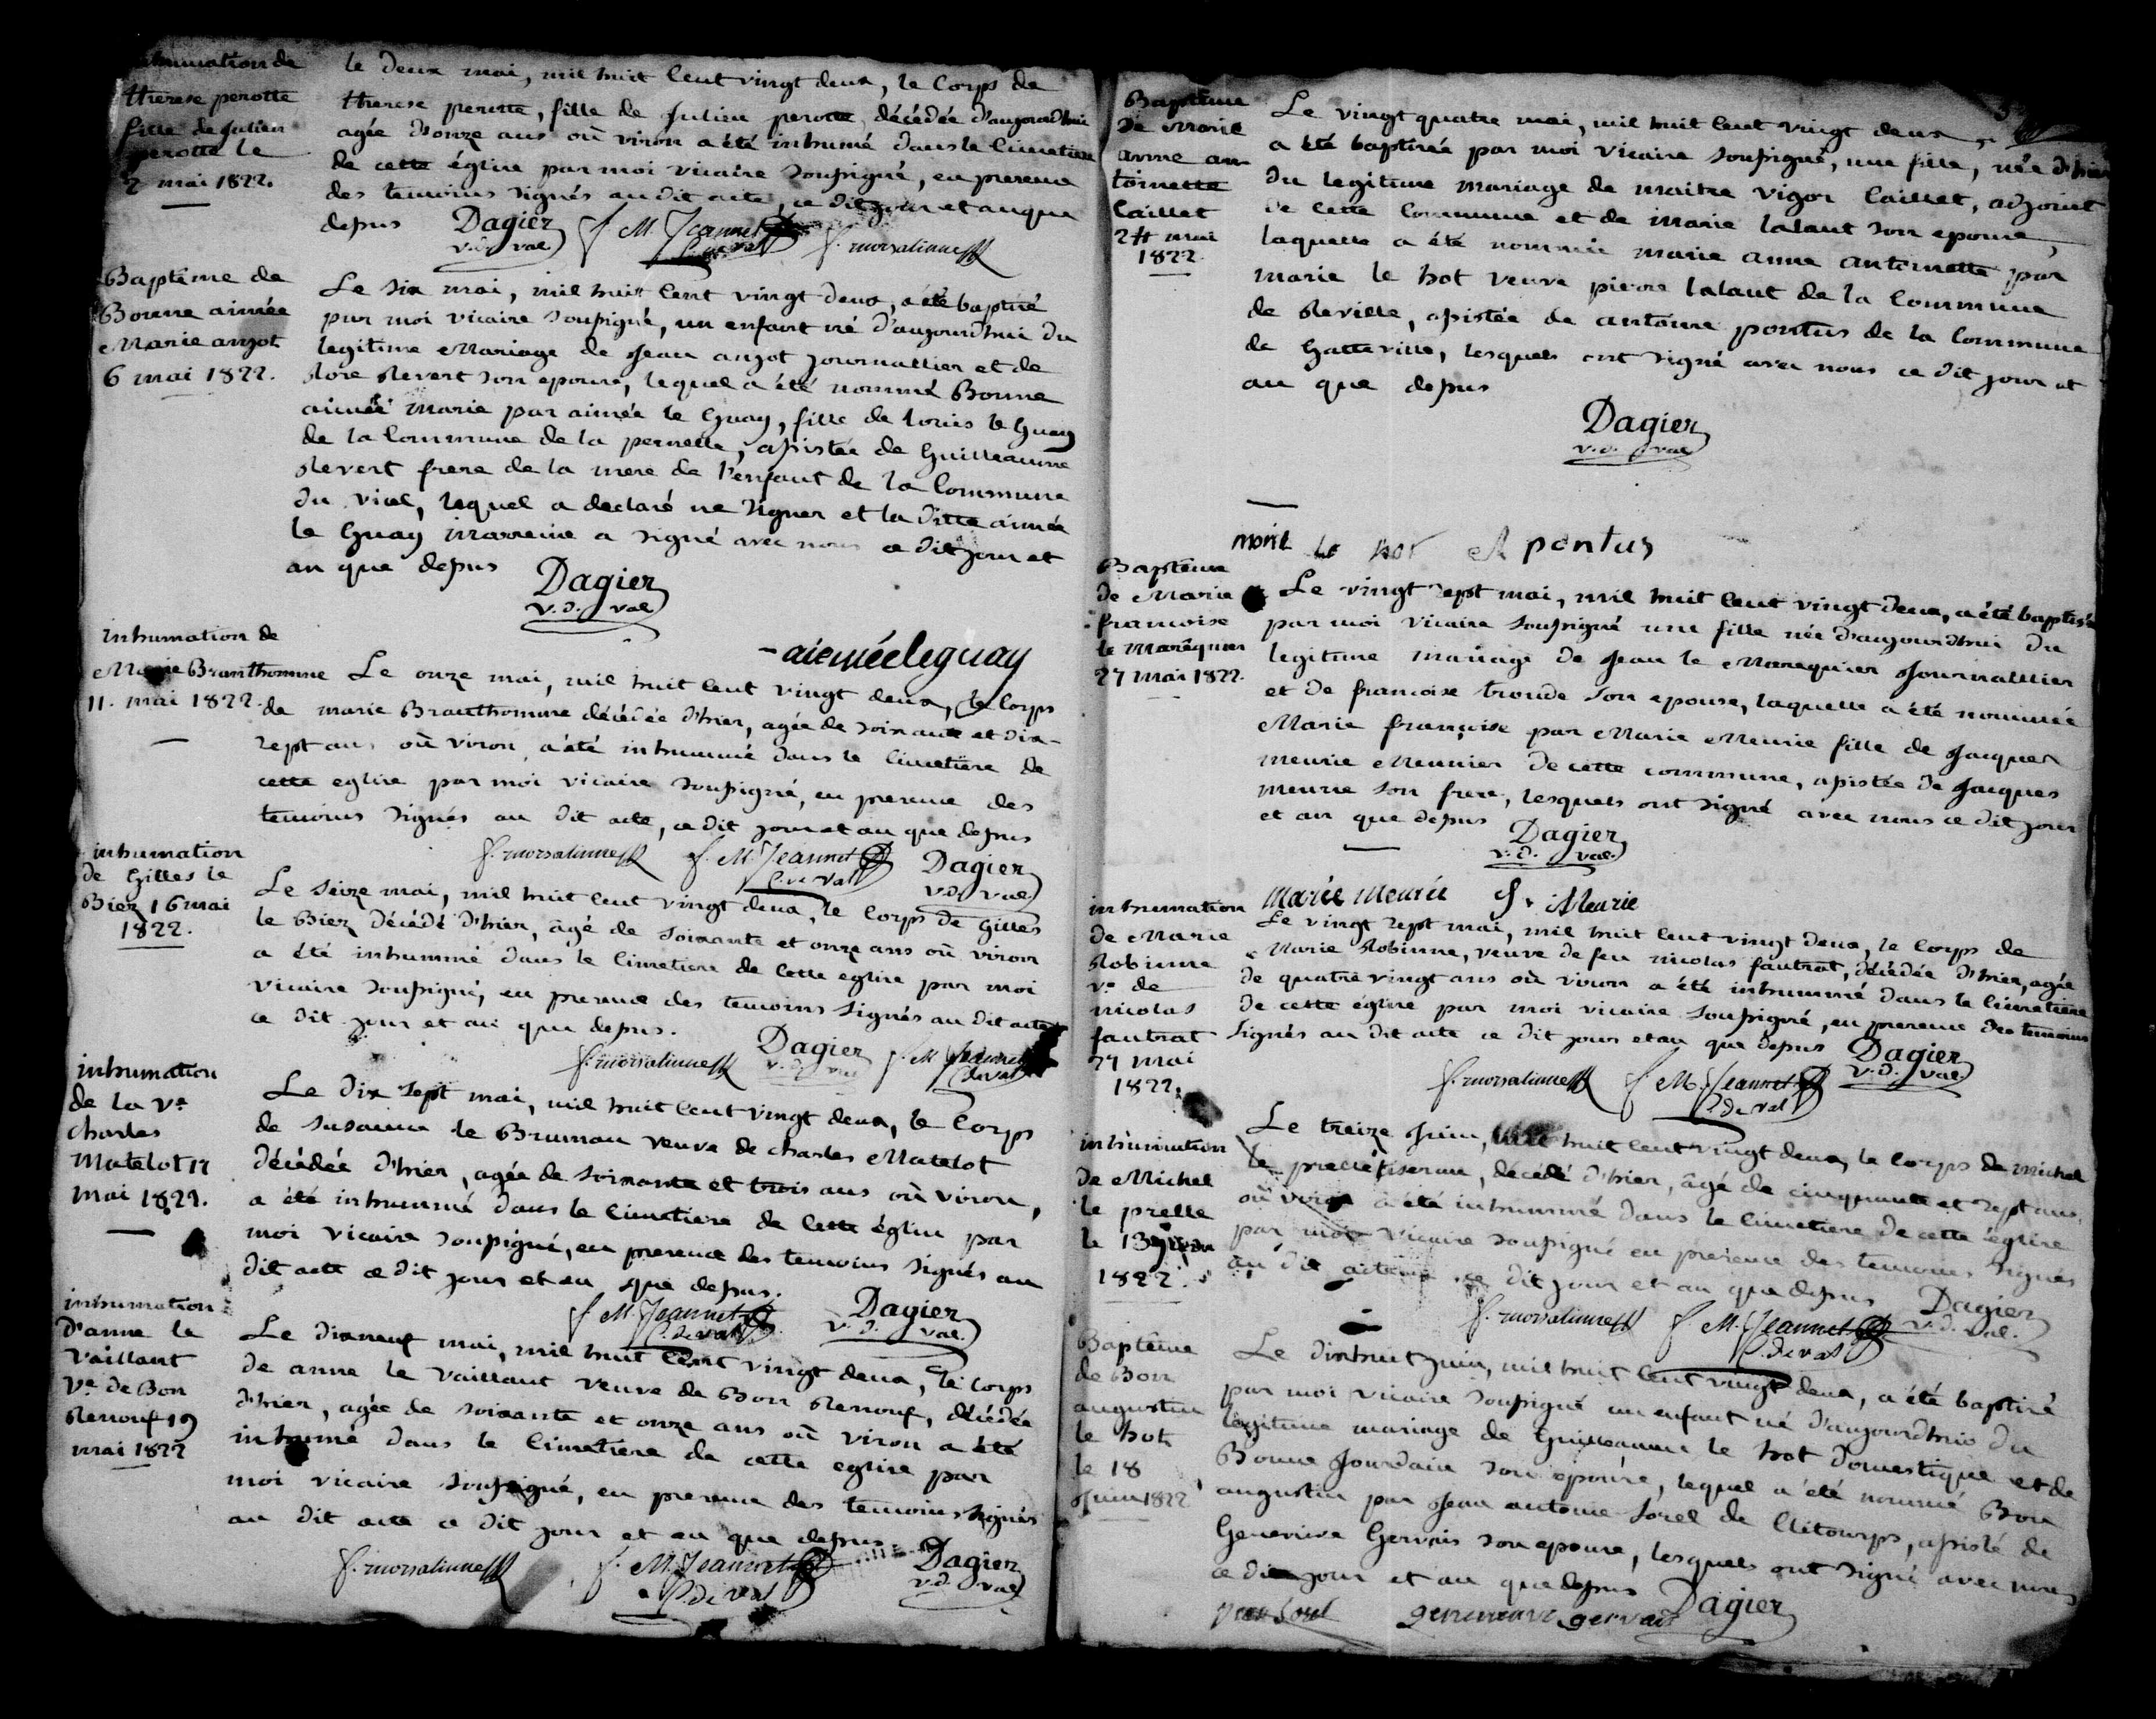 inhumation de
therese perotte
fille de Julien
perotte le
2 mai 1822.
le deux mai, mil huit Cent vingt deux, le Corps de
therese perotte, fille de Julien perotte, décédée d'aujourdhui
agée d'onze ans où viron a été inhumé dans le Cimetiere
de cette église par moi vicaire Soussigné, en presence
des temoins signés au dit acte, ce dit jour et an que
depus Dagier f M. Jeannet f. morsalinne
v. d. val C. de val
Baptême de
Bonne aimée
Marie anzot
6 mai 1822.
Le Six mai, mil huit Cent vingt deux, a été baptisé
par moi vicaire Soussigné, un enfant né d'aujourdhui du
legitime Mariage de Jean anzot journallier et de
Rose Revert son epouse, lequel a été nommé Bonne
aimée marie par aimée le Guay, fille de Louis le Guay
de la Commune de la pernelle, assistée de Guilleaume
Revert frere de la mere de l'enfant de la Commune
du vical, lequel a declaré ne signer et la ditte aimée
le Guay marreine a signé avec nous ce dit jour et
an que depus Dagier
v. d. val
aimée leguay
inhumation de
Marie Branthomme
11. mai 1822.
Le onze mai, mil huit Cent vingt deux, le Corps
de marie Branthomme décédée d'hier, agée de soixante et dix-
sept ans où viron a été inhummé dans le Cimetiere de
cette eglise par moi vicaire Soussigné, en presence des
temoins signés au dit acte, ce dit jour et an que depus
f. morsalinne f. M. Jeannet Dagier
C. de Val v. d. val
inhumation
de Gilles le
Biez 16 mai
1822.
Le Seize mai, mil huit Cent vingt deux, le Corps de Gilles
le Biez décédé d'hier, âgé de Soixante et onze ans où viron
a été inhummé dans le Cimetiere de Cette eglise par moi
vicaire Soussigné, en presence des temoins signés au dit acte
ce dit jour et an que depus.
f. morsalinne Dagier f M Jeannet
v. d. val C. de val
inhumation
de la ve
Charles
Matelot 17
mai 1822.
Le dix Sept mai, mil huit Cent vingt deux, le Corps
de Susanne le Bruman veuve de Charles Matelot
décédée d'hier, agée de Soixante et trois ans où viron,
a été inhummé dans le Cimetiere de Cette église par
moi vicaire Soussigné, en presence des temoins signés au
dit acte ce dit jour et an que depus.
f M. Jeannet Dagier
C. de val v. d. val.
inhumation
d'anne le
Vaillant
Ve de Bon
Renouf 19
mai 1822
Le dixneuf mai, mil huit Cent vingt deux, le Corps
de anne le Vaillant veuve de Bon Renouf, décédée
d'hier, agée de Soixante et onze ans où viron a été
inhumé dans le Cimetiere de cette eglise par
moi vicaire Soussigné, en presence des temoins signés
au dit acte ce dit jour et an que depus
f. morsalinne f. M. Jeannet Dagier
C. de val v. d. val
Baptême
de Marie
anne an
toinette
Caillet
24 mai
1822
Le vingt quatre mai, mil huit Cent vingt deux
a été baptisée par moi vicaire Soussigné, une fille, née d'hier
du legitime mariage de maitre vigor Caillet, adjoint
de Cette Commune et de Marie lalaut son epouse,
laquelle a été nommée marie anne antoinette par
marie le hot veuve pierre lalaut de la Commune
de Reville, assistée de antoine pontus de la Commune
de Gatteville, lesquels ont signé avec nous ce dit jour et
an que depus
Dagier
v. d. val
marie le hot A pontus
Baptême
de Marie
francoise
le marêquier
27 mai 1822.
Le vingt sept mai, mil huit Cent vingt deux, a été baptisée
par moi vicaire Soussigné une fille née d'aujourdhui du
legitime mariage de Jean le Marequier Journallier
et de francoise troude Son epouse, laquelle a été nommée
Marie françoise par Marie Meurie fille de Jacques
meurie Meunier de cette commune, assistée de Jacques
meurie Son frere, lesquels ont signé avec nous ce dit jour
et an que depus Dagier
v. d. val.
Marie Meurie J. Meurie
inhumation
de Marie
Robinne
ve de
nicolas
fautrat
27 mai
1822.
Le vingt sept mai, mil huit Cent vingt deux, le Corps de
Marie Robinne, veuve de feu nicolas fautrat, décédée d'hier, agée
de quatre vingt ans où viron a été inhummé dans le Cimetiere
de cette église par moi vicaire Soussigné, en presence des temoins
Signés au dit acte ce dit jour et an que depus Dagier
f. morsalinne f M. Jeannet v. d. val.
C. de val
inhumation
de Michel
le prelle
le 13 juin
1822.
Le treize Juin, mil huit Cent vingt deux, le Corps de Michel
le prelle, décedé d'hier, âgé de cinquante et sept ans,
où viron a été inhummé dans le Cimetiere de cette église
par moi vicaire Soussigné en presence des temoins signés
au dit acte ce dit jour et an que depus Dagier
f. morsalinne f M. Jeannet v. d. val.
C. de val
Baptême
de Bon
augustin
le hot
le 18
Juin 1822
Le dixhuit juin, mil huit Cent vingt deux, a été baptisé
par moi vicaire Soussigné un enfant né d'aujourdhui du
legitime mariage de Guilleaume le hot domestique et de
Bonne Jourdain Son epouse, lequel a été nommé Bon
augustin par Jean antoine Sorel de Clitourps, assisté de
Genevieve Gervais son epouse, lesquels ont signé avec nous
ce dit jour et an que depus Dagier
genevieve gervais